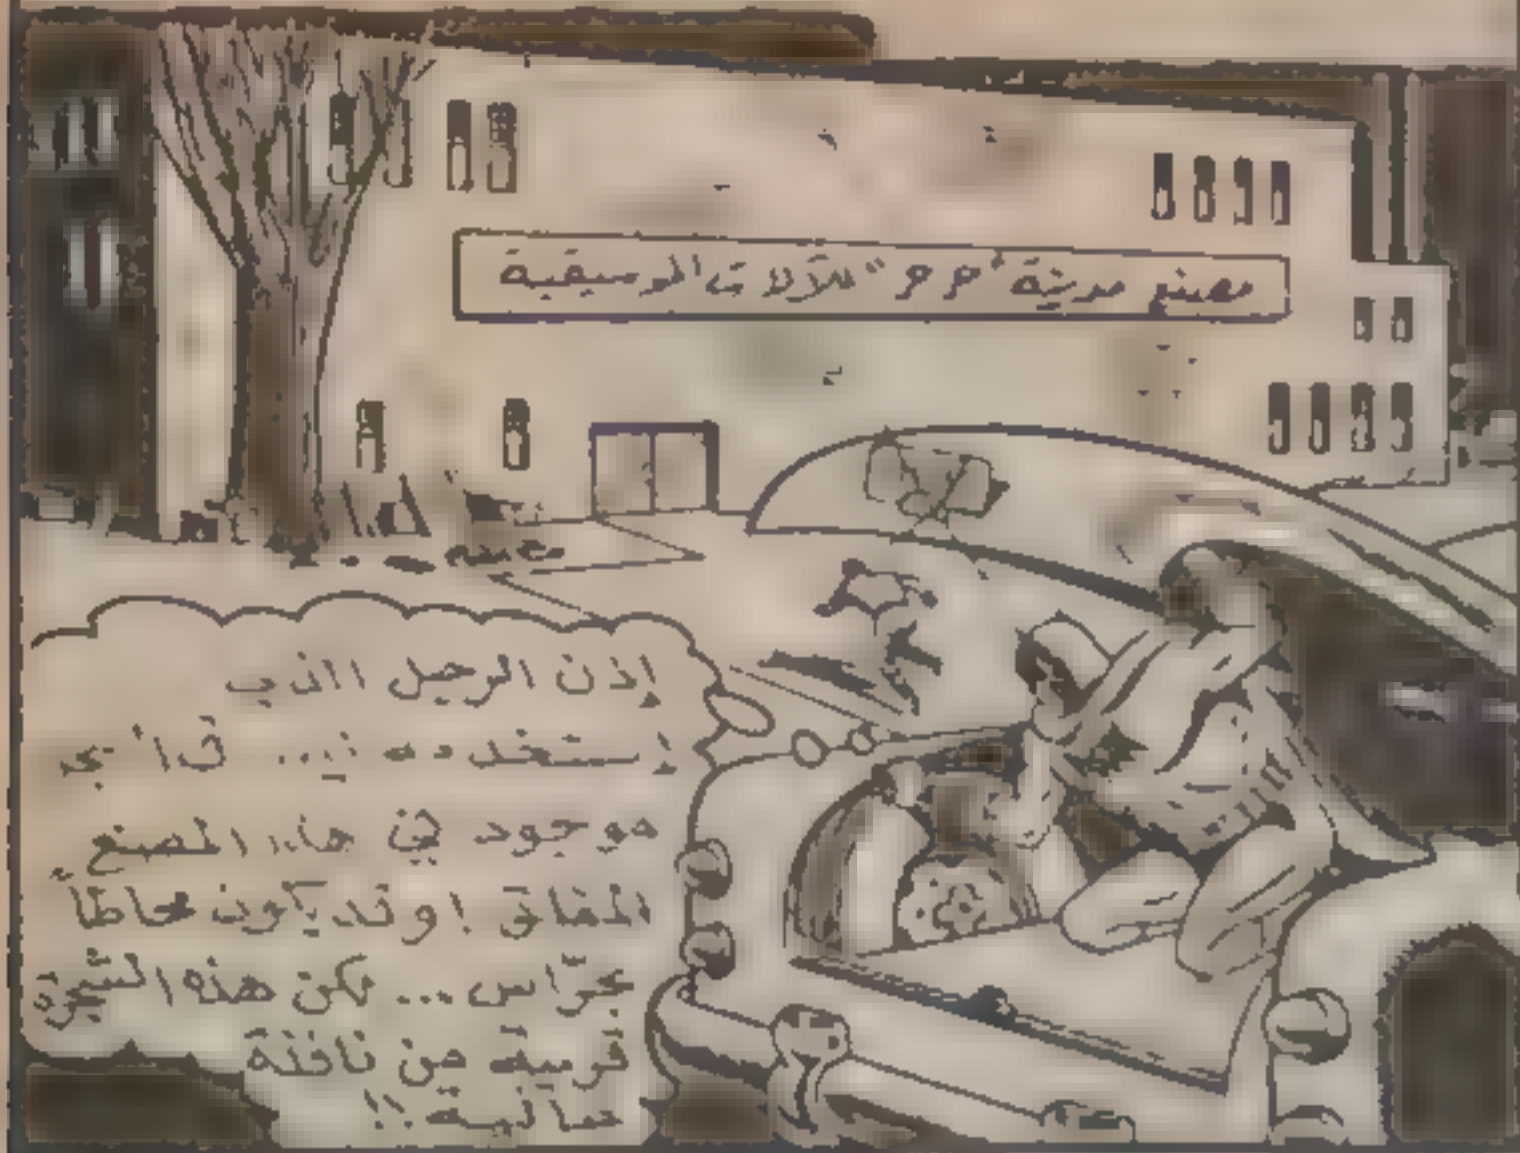 مصنع مدينة "مرمر" للآلات الموسيقية
إذن الرجل الذي
إستخدمه ني...
موجود في هذا المصنع
المغلق ! وقد يكون محاطاً
بحرّاس... لكن هذه الشجرة
قريبة من نافذة
عالية !!